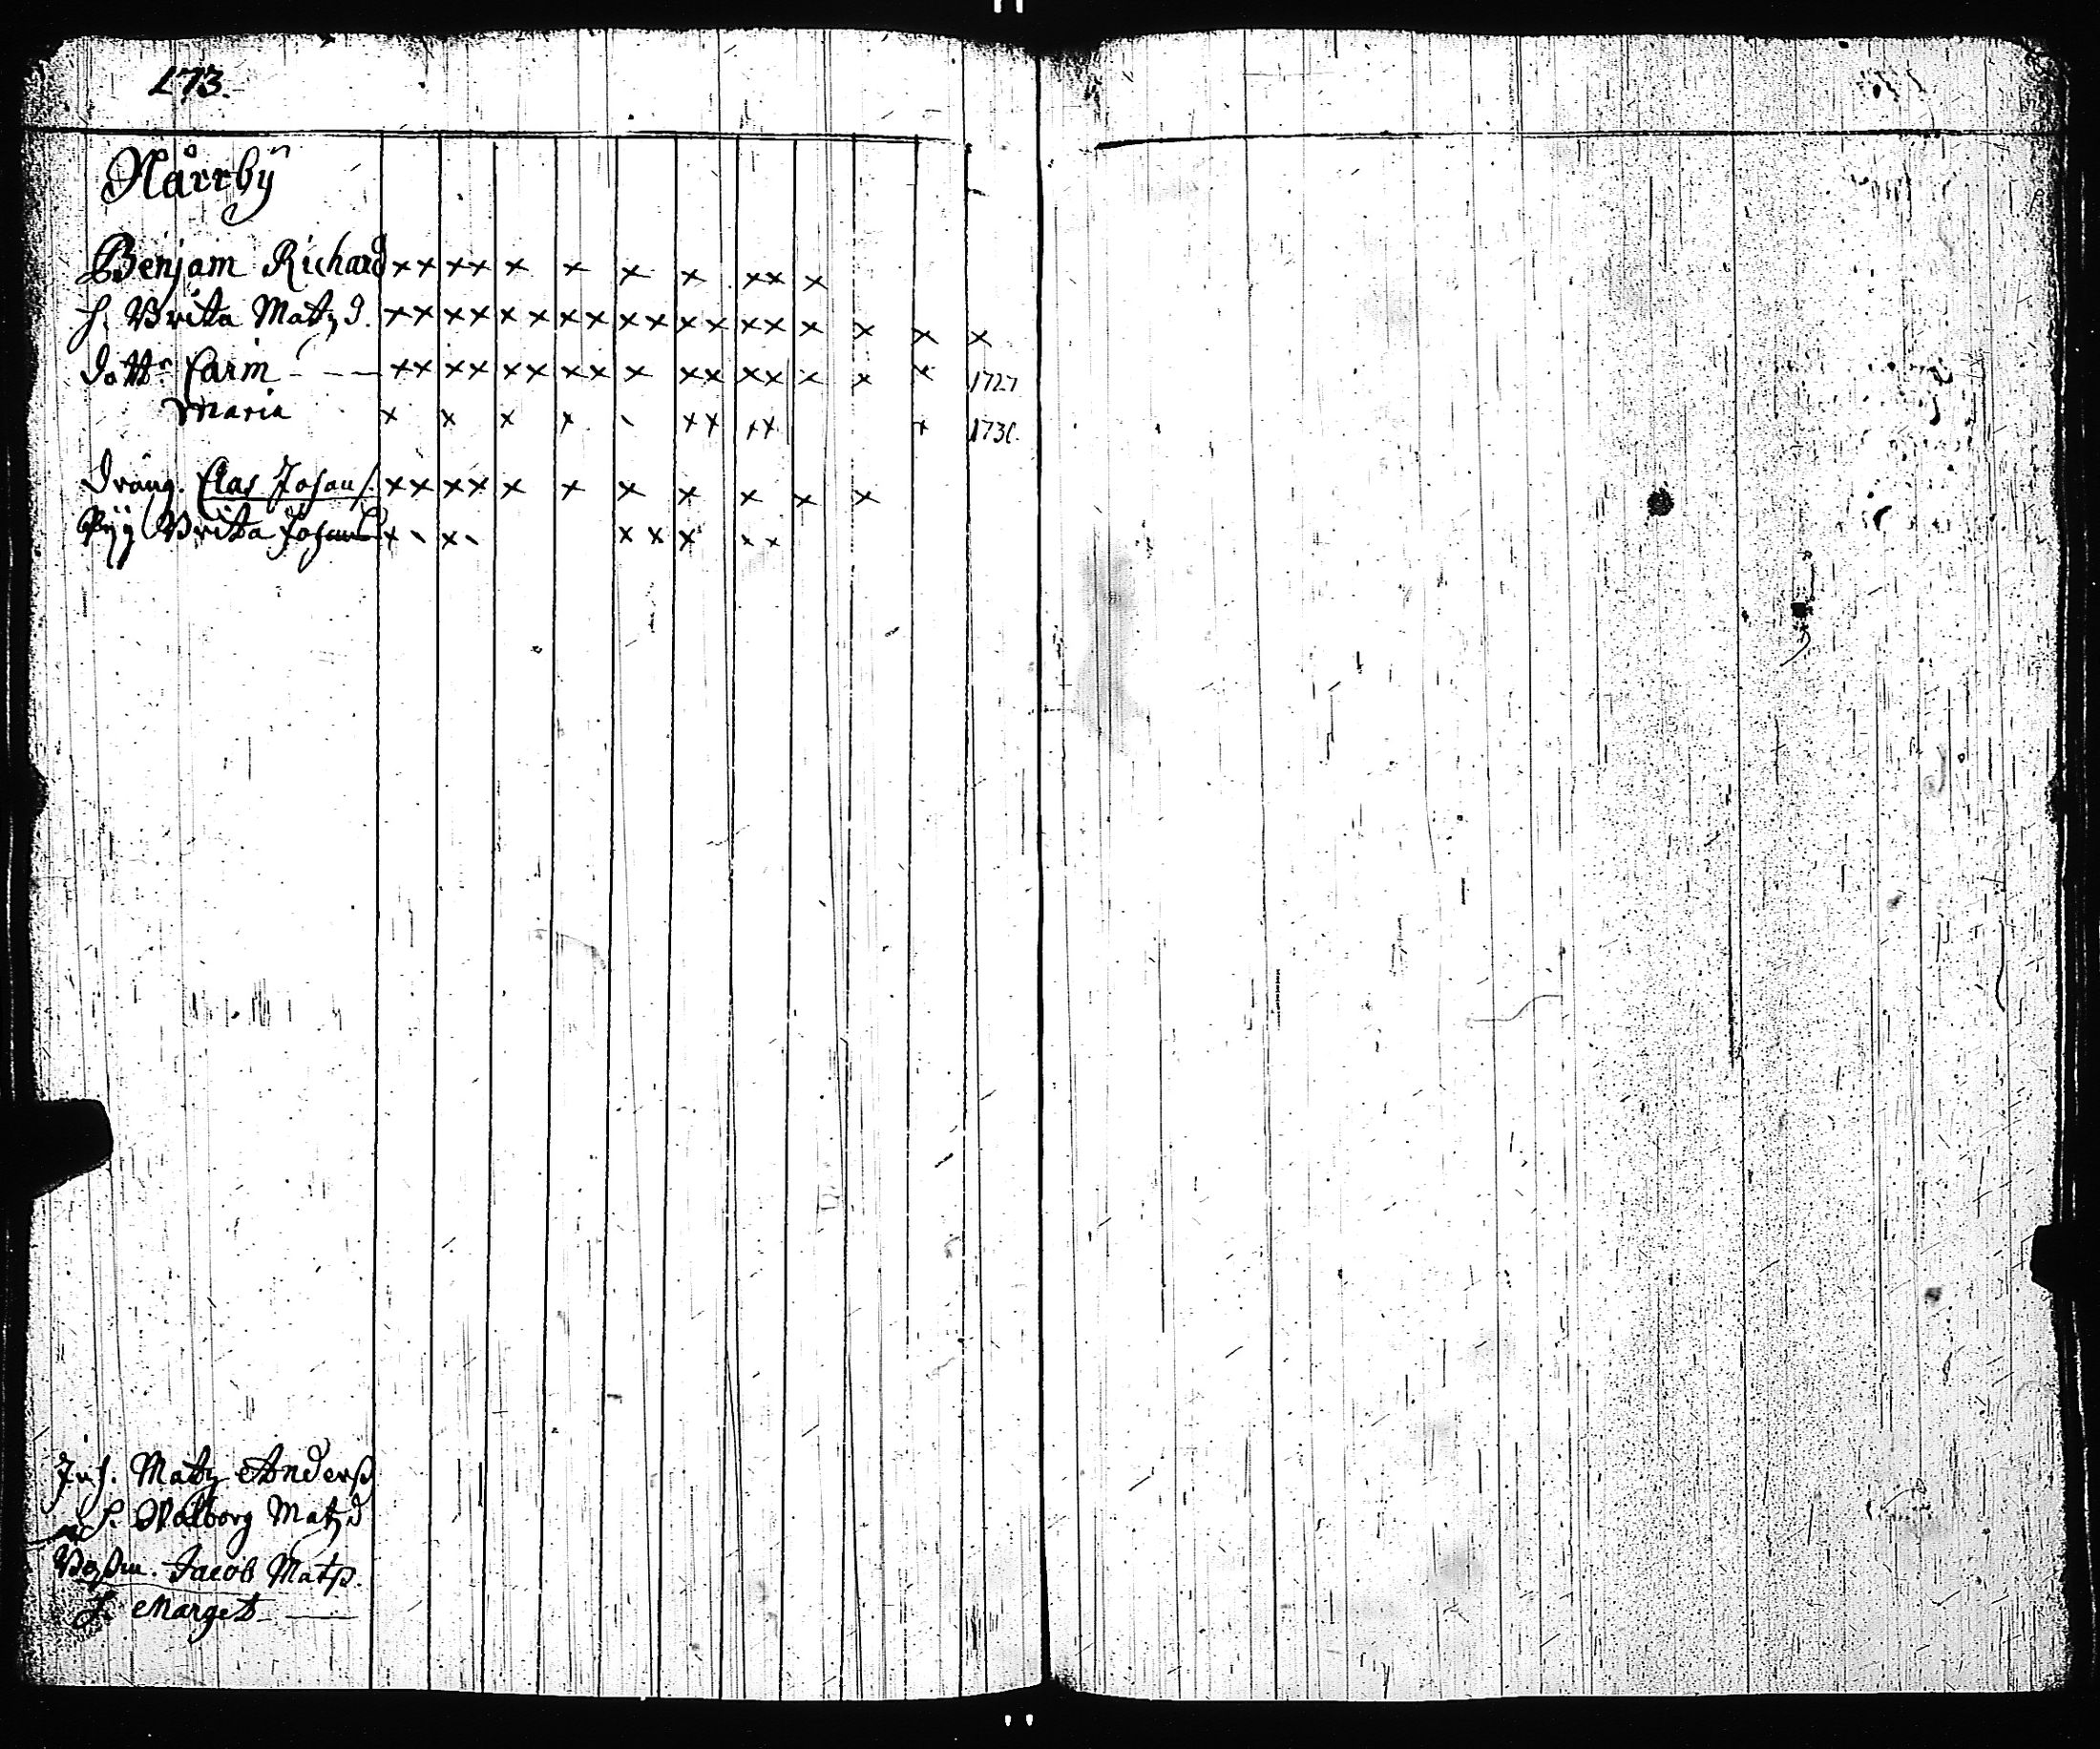 173.
Nårrbÿ
Benjam Richard ×× ×× × × × × ×× ×
h. Brita Matzd. ×× ×× ×× ×× ×× ×× ×× × × × ×
dottr Carin - — ×× ×× ×× ×× × ×× ×× × × × 1727
Maria × × × × ×× ×× × 173
Dräng. Clas Johans. ×× ×× × × × × × × ×
Brita Johansd × × ×× × ××
Inh. Matz Anderß
h. Walborg Matzd
Jacob Matß.
h. Marget —